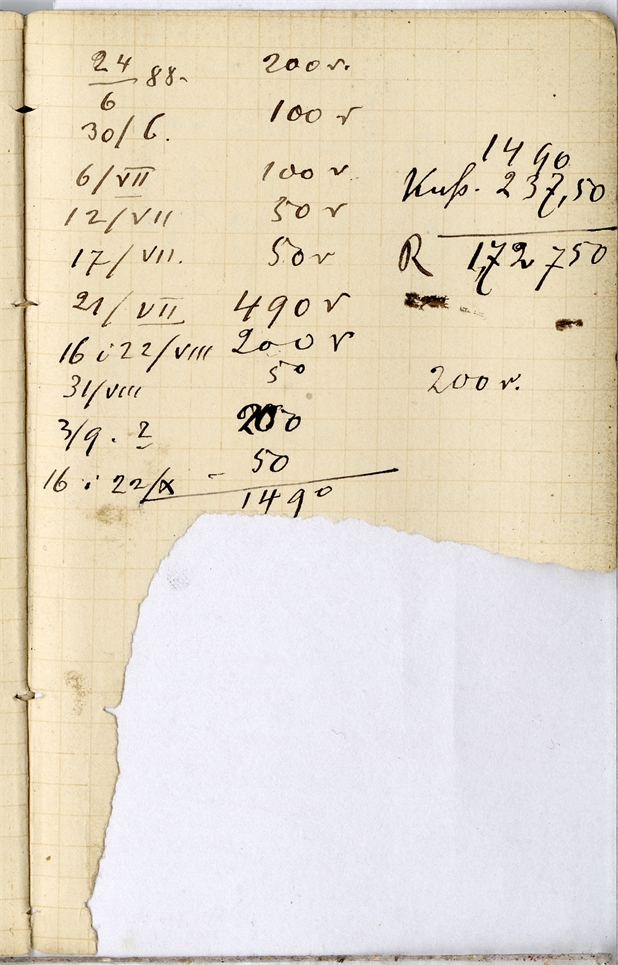 24/6 88. 200 r.
30/6. 100 r
6/VII 100 r
12/VII 50 r
17/VII. 50 r
21/VII 490 r
16 i 22/VIII 200 r
31/VIII 50
3/9. 2
50
16 i 22/X - 50
1490
1490
Kuß. 237,50
R 1,72 750
200 r.